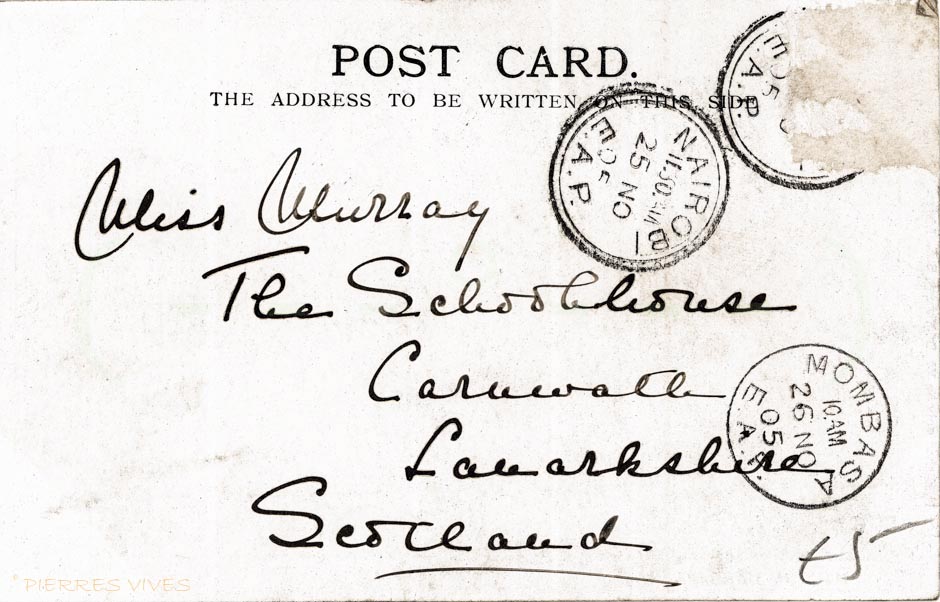 POST CARD.
THE ADDRESS TO BE WRITTEN ON THIS SIDE
E.A.P.
05
NAIROBI
11.30.AM
25 NO
05
E.A.P.
Miss Murray
The Schoolhouse
Carnwath
Lanarkshire
Scotland
MOMBASA
10.AM
26 NO
05
E.A.P.
£5
© PIERRES VIVES